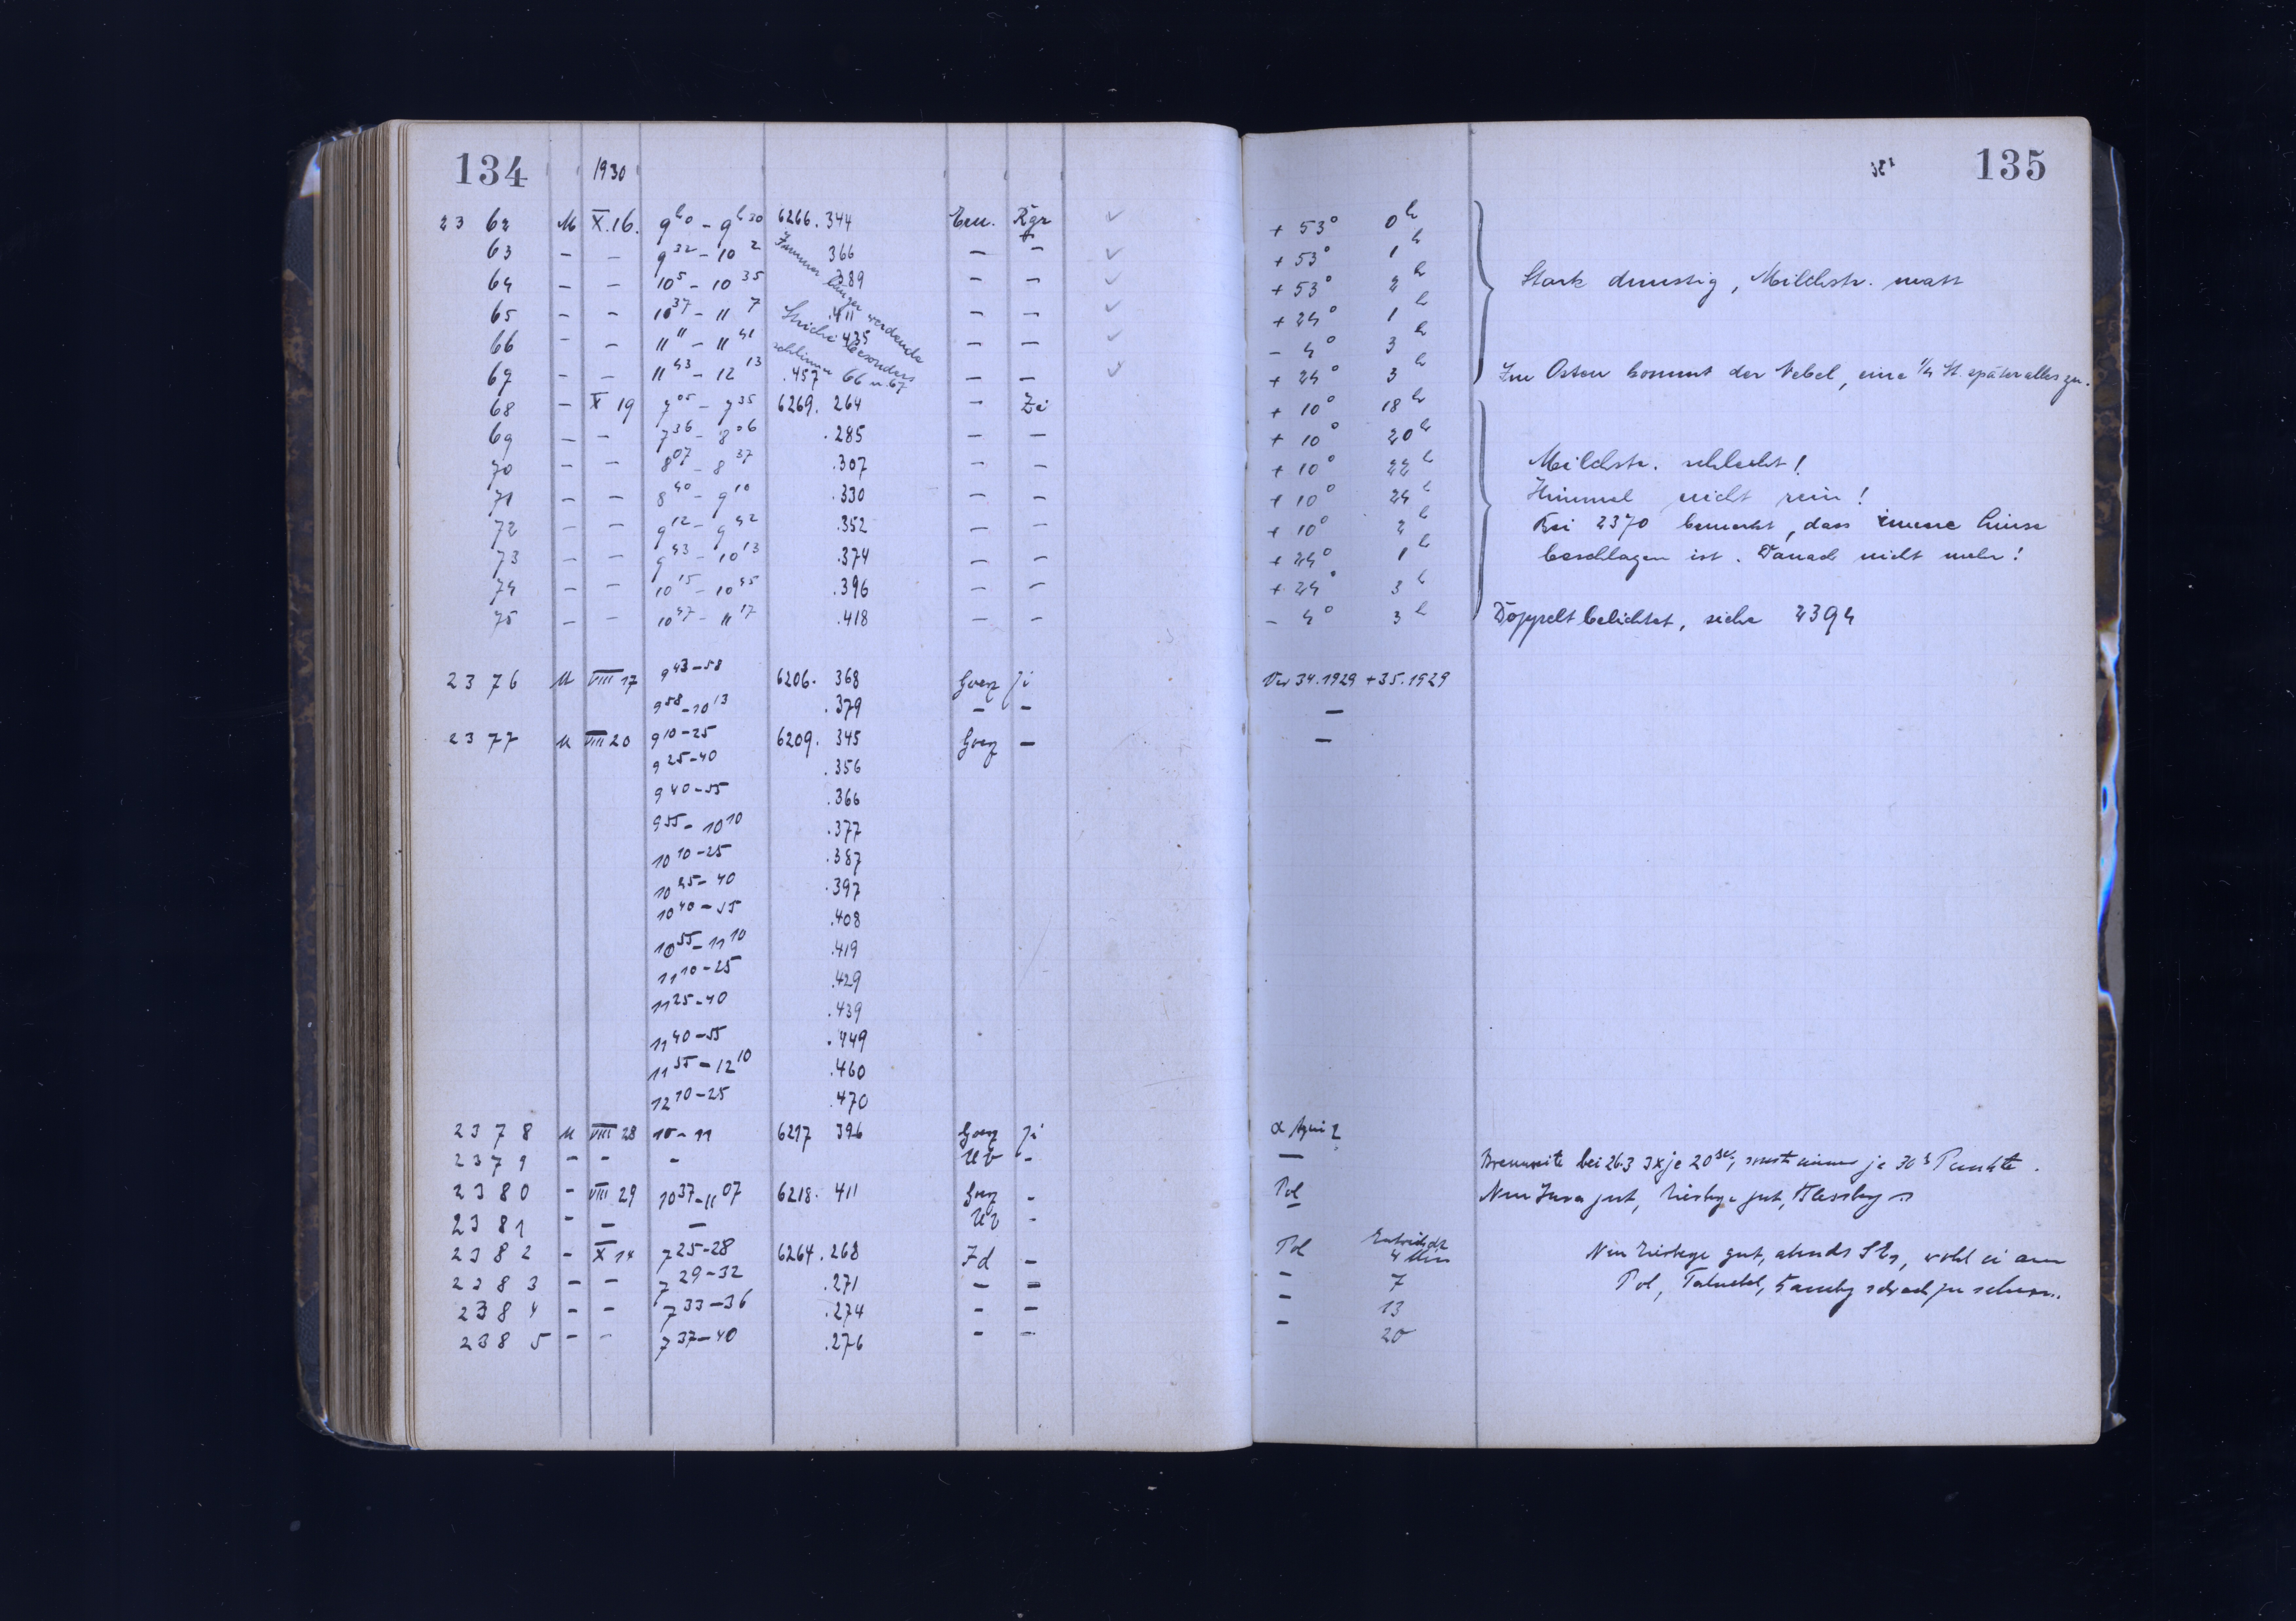 134 1930
135
23 62 M X.16. 9^h0 – 9^h30 6266.344 Ern. Kgr + 53° 0^h
63 – – 9^32 – 10^2 366 – – + 53° 1^h
64 – – 10^5 – 10^35 389 – – + 53° 2^h Stark dunstig, Milchstr. matt
65 – – 10^37 – 11^7 .411 – – + 24° 1^h
66 – – 11^11 – 11^41 435 – – – 4° 3^h
67 – – 11^43 – 12^13 .457 – – + 24° 3^h Im Osten kommt der Nebel, eine 1/4 St. später alles zu.
Immer länger werdende
Striche besonders
schlimm 66 u. 67
68 – X 19 7^05 – 7^35 6269.264 – Zi + 10° 18^h
69 – – 7^36 – 8^06 .285 – – + 10° 20^h
70 – – 8^07 – 8^37 .307 – – + 10° 22^h Milchstr. schlecht!
71 – – 8^40 – 9^10 .330 – – + 10° 24^h Himmel nicht rein!
72 – – 9^12 – 9^42 .352 – – + 10° 2^h Bei 2370 bemerkt, dass innere Linse
73 – – 9^43 – 10^13 .374 – – + 24° 1^h beschlagen ist. Danach nicht mehr!
74 – – 10^15 – 10^45 .396 – – + 24° 3^h
75 – – 10^47 – 11^17 .418 – – – 4° 3^h Doppelt belichtet, siehe 2394
2376 M VIII 17 9^43–58 6206.368 Goerz Ji Var 34.1929 + 35.1929
9^58–10^13 .379 – – –
2377 M VIII 20 9^10–25 6209.345 Goerz – –
9^25–40 .356
9^40–55 .366
9^55–10^10 .377
10^10–25 .387
10^25–40 .397
10^40–55 .408
10^55–11^10 .419
11^10–25 .429
11^25–40 .439
11^40–55 .449
11^55–12^10 .460
12^10–25 .470
2378 M VIII 28 10–11 6217 396 Goerz Ji α Aquil
2379 – – – UV – – bei 26.3 3x je 20^sec, sonst immer je 30^s Punkte.
2380 – VIII 29 10^37–11^07 6218.411 Goerz – Pol gut, gut,
2381 – – – UV – –
2382 – X 14 7^25–28 6264.268 Zd – Pol 4 Min gut, abends wohl
2383 – – 7^29–32 .271 – – – 7 Pol,
2384 – – 7^33–36 .274 – – – 13
2385 – – 7^37–40 .276 – – – 20